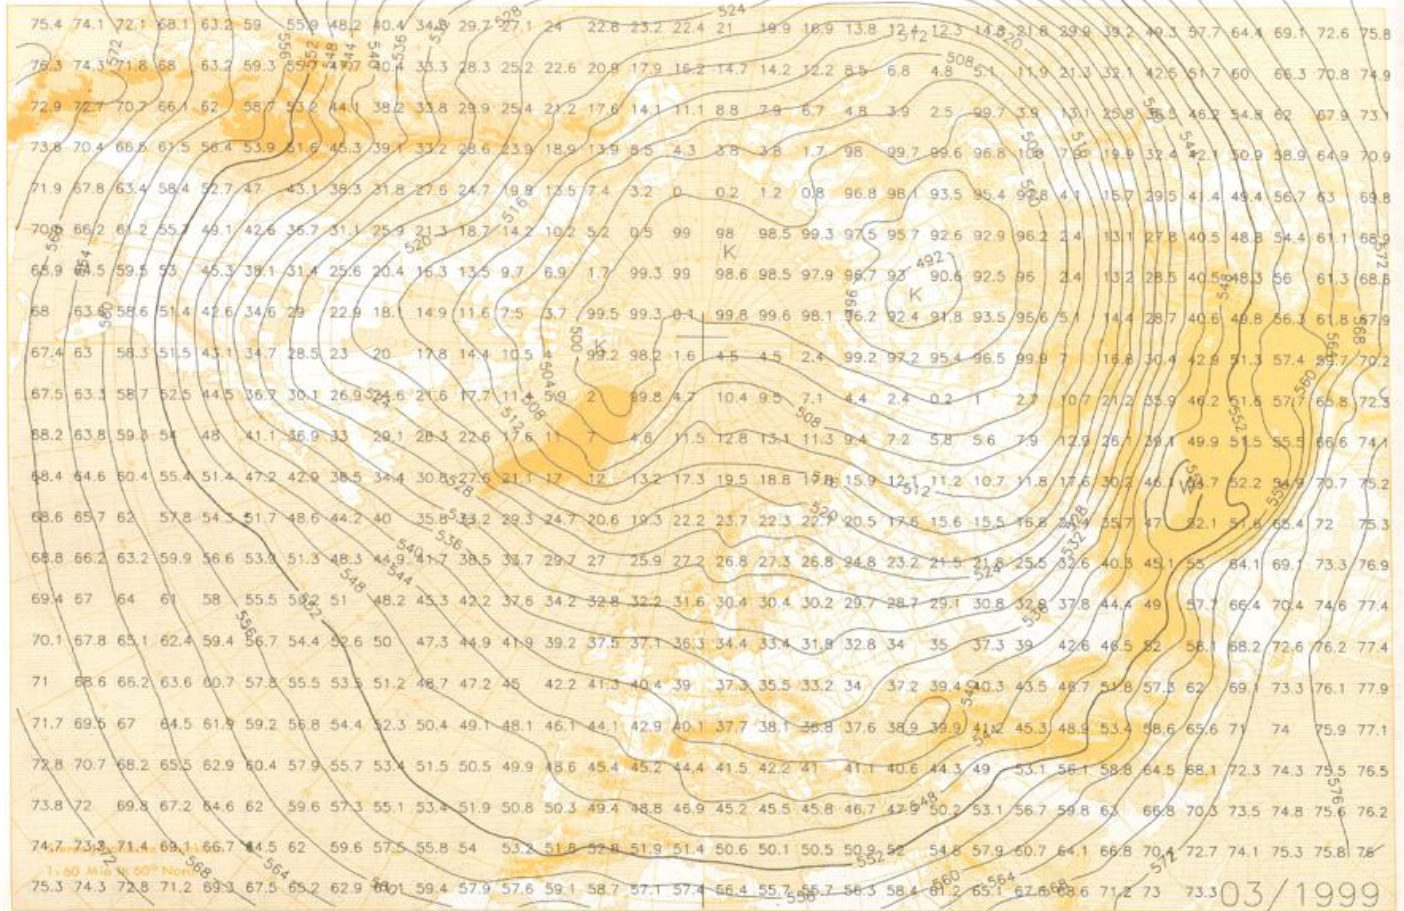 528 524
75.4 74.1 72.1 68.1 63.2 59 55.9 48.2 40.4 34.8 29.7 27.1 24 22.8 23.2 22.4 21 19.9 16.9 13.8 12.4 12.3 14.8 21.8 29.9 39.2 49.3 57.7 64.4 69.1 72.6 75.8
572 556 552 548 544 540 536 512 520 508
76.3 74.3 71.8 68 63.2 59.3 40.4 33.3 28.3 25.2 22.6 20.9 17.9 16.2 14.7 14.2 12.2 8.5 6.8 4.8 5.1 11.9 21.3 32.1 42.5 51.7 60 66.3 70.8 74.9
72.9 72.7 70.7 66.1 62 58.7 53.2 44.1 38.2 33.8 29.9 25.4 21.2 17.6 14.1 11.1 8.8 7.9 6.7 4.8 3.9 2.5 99.7 3.9 13.1 25.8 46.2 54.8 62 67.9 73.1
73.8 70.4 66.8 61.5 56.4 53.9 51.6 45.3 39.1 33.2 28.6 23.9 18.9 13.9 8.5 4.3 3.8 3.8 1.7 98 99.7 99.6 96.8 19.9 32.4 42.1 50.9 58.9 64.9 70.9
516 544
71.9 67.8 63.4 58.4 52.7 47 43.1 38.3 31.8 27.6 24.7 19.8 13.5 7.4 3.2 0 0.2 1.2 0.8 96.8 98.1 93.5 95.4 4.1 15.7 29.5 41.4 49.4 56.7 63 69.8
516
66.2 61.2 55.7 49.1 42.6 36.7 31.1 25.9 21.3 18.7 14.2 10.2 5.2 0.5 99 98 98.5 99.3 97.5 95.7 92.6 92.9 96.2 2.4 13.1 27.8 40.5 48.8 54.4 61.1 68.9
520 K 492 572
64.5 59.5 53 45.3 38.1 31.4 25.6 20.4 16.3 13.5 9.7 6.9 1.7 99.3 99 98.6 98.5 97.9 96.7 93 90.6 92.5 96 2.4 13.2 28.5 40.5 48.3 56 61.3
560 K 496 548
68 58.6 51.4 42.6 34.6 29 22.9 18.1 14.9 11.6 7.5 3.7 99.5 99.3 0.1 99.8 99.6 98.1 96.2 92.4 91.8 93.5 95.6 5.1 14.4 28.7 40.6 49.8 56.3 61.8 67.9
500 K 568
67.4 63 58.3 51.5 43.1 34.7 28.5 23 20 17.8 14.4 10.5 99.2 98.2 1.6 4.5 4.5 2.4 99.2 97.2 95.4 96.5 99.9 7 16.8 30.4 42.9 51.3 57.4 70.2
504 560
67.5 63.3 58.7 52.5 44.5 36.7 30.1 26.9 24.6 21.6 17.7 5.9 2 99.8 4.7 10.4 9.5 7.1 4.4 2.4 0.2 1 2.7 10.7 21.2 33.9 46.2 51.6 57.7 65.8 72.3
512 508 508 552
68.2 63.8 59.3 54 48 41.1 36.9 33 29.1 28.3 22.6 17.6 11 7 4.6 11.5 12.8 13.1 11.3 9.4 7.2 5.8 5.6 7.9 12.9 26.1 39.1 49.9 51.5 55.5 66.6 74.1
68.4 64.6 60.4 55.4 51.4 47.2 42.9 38.5 34.4 30.8 27.6 21.1 17 12 13.2 17.3 19.5 18.8 15.9 12.1 11.2 10.7 11.8 17.6 30.2 52.2 54.9 70.7 75.2
528 512
520 528
68.6 65.7 62 57.8 54.3 51.7 48.6 44.2 40 35.8 33.2 29.3 24.7 20.6 19.3 22.2 23.7 22.3 22.7 20.5 17.6 15.6 15.5 16.8 35.7 47 52.1 51.6 65.4 72 75.3
536 540 532
68.8 66.2 63.2 59.9 56.6 53.9 51.3 48.3 44.9 41.7 38.5 33.7 29.7 27 25.9 27.2 26.8 27.3 26.8 24.8 23.2 21.5 21.8 25.5 32.6 40.3 45.1 55 64.1 69.1 73.3 76.9
544 548 524
69.4 67 64 61 58 55.5 51 48.2 45.3 42.2 37.6 34.2 32.8 32.2 31.6 30.4 30.4 30.2 29.7 28.7 29.1 30.8 32.9 37.8 44.4 49 57.7 66.4 70.4 74.6 77.4
552 556 536
70.1 67.8 65.1 62.4 59.4 56.7 54.4 52.6 50 47.3 44.9 41.9 39.2 37.5 37.1 36.3 34.4 33.4 31.8 32.8 34 35 37.3 39 42.6 46.5 52 58.1 68.2 72.6 76.2 77.4
71 68.6 66.2 63.6 60.7 57.8 55.5 53.5 51.2 48.7 47.2 45 42.2 41.3 40.4 39 37.3 35.5 33.2 34 37.2 39.4 40.3 43.5 46.7 51.8 57.3 62 69.1 73.3 76.1 77.9
540
71.7 69.5 67 64.5 61.9 59.2 56.8 54.4 52.3 50.4 49.1 48.1 46.1 44.1 42.9 40.1 37.7 38.1 36.8 37.6 38.9 39.9 41.2 45.3 48.9 53.4 58.6 65.6 71 74 75.9 77.1
72.8 70.7 68.2 65.5 62.9 60.4 57.9 55.7 53.4 51.5 50.5 49.9 48.6 45.4 45.2 44.4 41.5 42.2 41 41.1 40.6 44.3 49 53.1 56.1 58.8 64.5 68.1 72.3 74.3 75.5 76.5
548 576
73.8 72 69.8 67.2 64.6 62 59.6 57.3 55.1 53.4 51.9 50.8 50.3 49.4 48.8 46.9 45.2 45.5 45.8 46.7 47.9 50.2 53.1 56.7 59.8 63 66.8 70.3 73.5 74.8 75.6 76.2
74.7 73.3 71.4 69.1 66.7 64.5 62 59.6 57.5 55.8 54 53.2 51.8 52.8 51.9 51.4 50.6 50.1 50.5 50.9 52 54.8 57.9 60.7 64.1 66.8 70.4 72.7 74.1 75.3 75.8 76
572 568 564 552 572
1:60 Mio in 60° Nord
75.3 74.3 72.8 71.2 69.3 67.5 65.2 62.9 59.4 57.9 57.6 59.1 58.7 57.1 57.4 56.4 55.7 55.7 56.3 58.4 61.2 65.1 67.6 68.6 71.2 73 73.3
556 560 564 568
03/1999